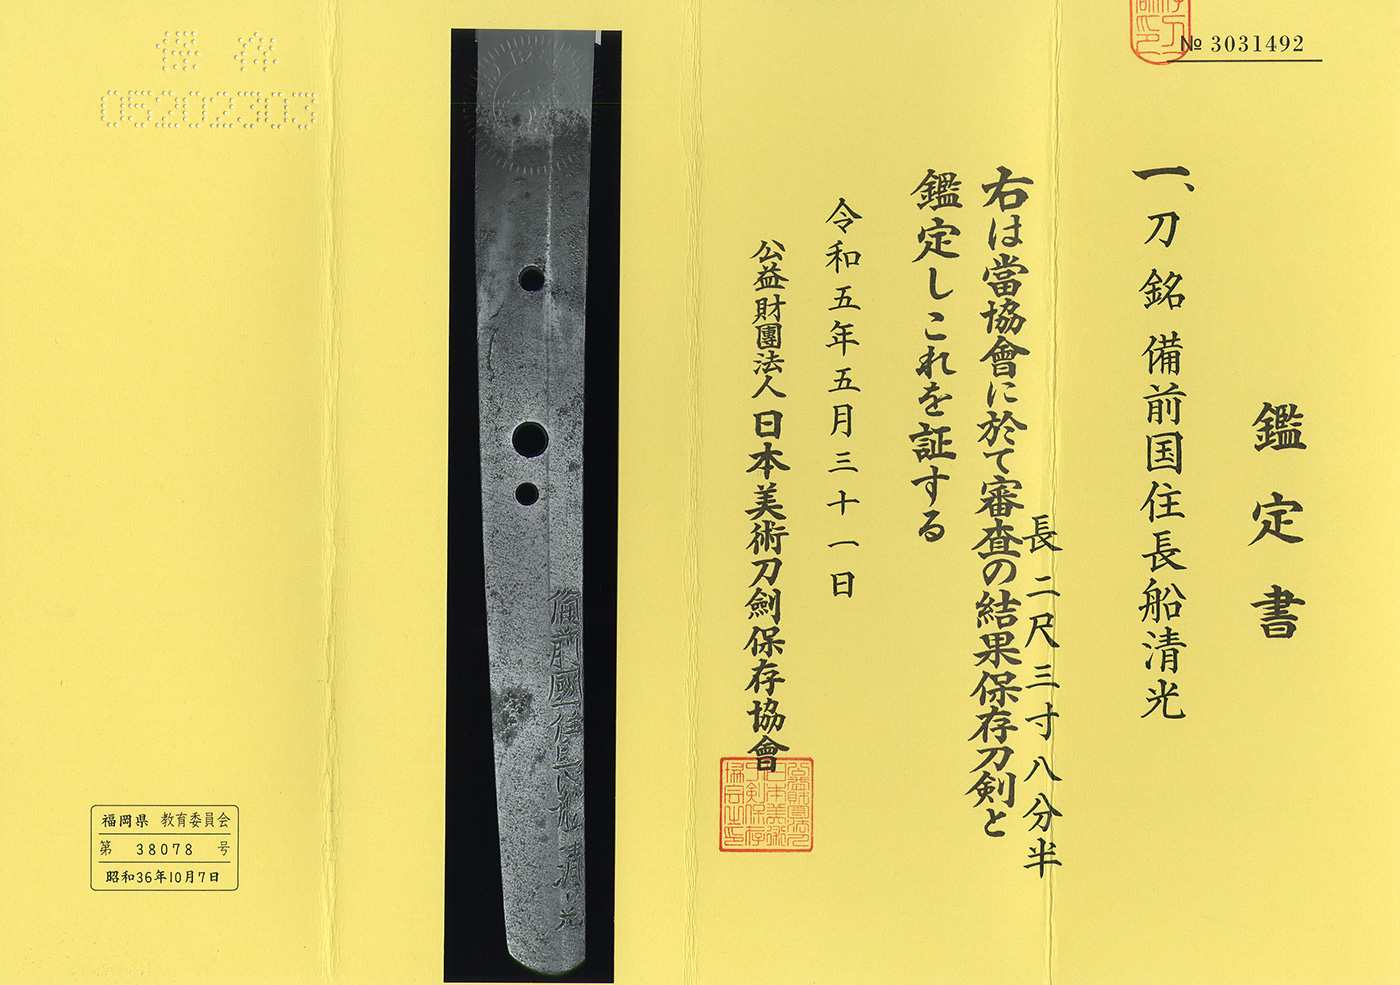 № 3031492
鑑定書
一、刀 銘 備前国住長船清光
長 二尺三寸八分半
右は當協會に於て審査の結果保存刀剣と
鑑定しこれを証する
令和五年五月三十一日
公益財團法人 日本美術刀劍保存協會
備前國住長船清光
保存
05202303
福岡県 教育委員会
第 38078 号
昭和36年10月7日